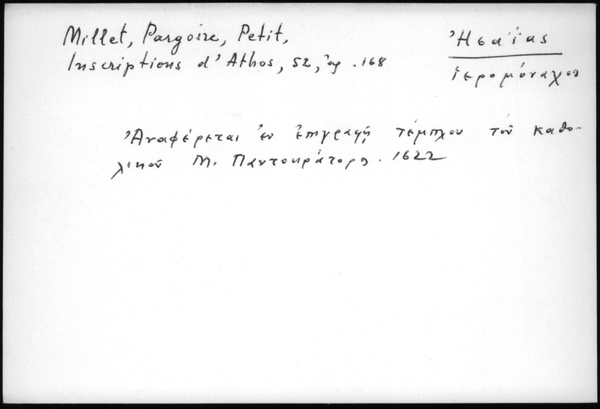 Millet, Pargoire, Petit,
Inscriptions d'Athos, 52, ἀρ. 168
Ἠσαΐας
ἱερομόναχος
Ἀναφέρεται ἐν ἐπιγραφῇ τέμπλου τοῦ καθο-
λικοῦ Μ. Παντοκράτορος. 1622